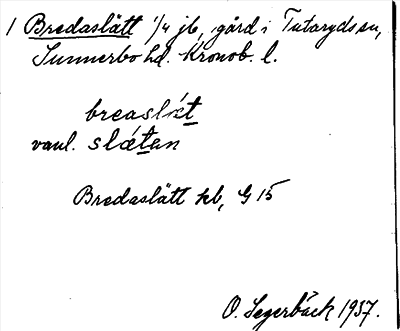 1 Bredaslätt 1/4 jb, gård i Tutaryds sn,
Sunnerbo hd. Kronob. l.
breaslæ̀t
vanl. slǽtan
Bredaslätt kb, G 15
O. Segerbäck 1937.